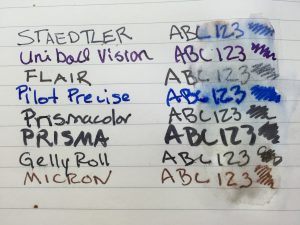 STAEDTLER ABC 123
Uniball Vision ABC123
FLAIR ABC 123
Pilot Precise ABC 123
Prismacolor ABC 123
PRISMA ABC123
Gelly Roll ABC 123
MICRON ABC 123